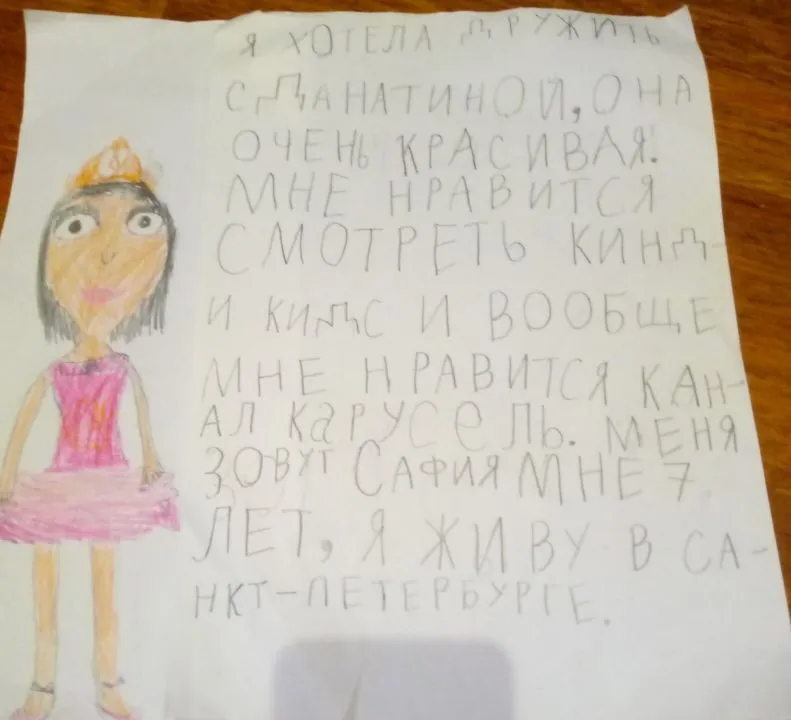 Я ХОТЕЛА ДРУЖИТЬ
С ДАНАТИНОЙ, ОНА
ОЧЕНЬ КРАСИВАЯ.
МНЕ НРАВИТСЯ
СМОТРЕТЬ КИНД-
И КИДС И ВООБЩЕ
МНЕ НРАВИТСЯ КАН-
АЛ КаРУСеЛЬ. МЕНЯ
ЗОВУТ САФИЯ МНЕ 7
ЛЕТ, Я ЖИВУ В СА-
НКТ-ПЕТЕРБУРГЕ.